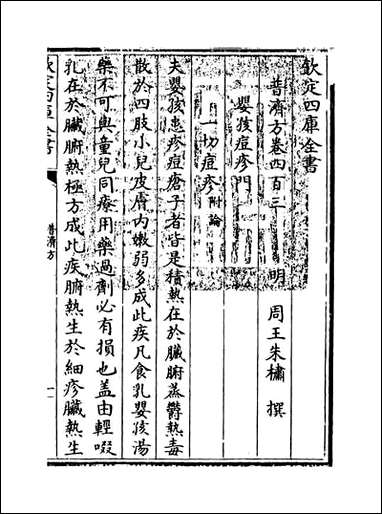 欽定四庫全書
普濟方卷四百三
明 周王朱橚 撰
嬰孩痘疹門
一切痘疹附論
夫嬰孩患疹痘瘡子者皆是積熱在於臟腑蒸鬱熱毒
散於四肢小兒皮膚内嫩弱多成此疾凡食乳嬰孩湯
藥不可與童兒同療用藥過劑必有損也盖由輕啜
乳在於臟腑熱極方成此疾腑熱生於細疹臟熱生
欽定四庫全書
普濟方
一